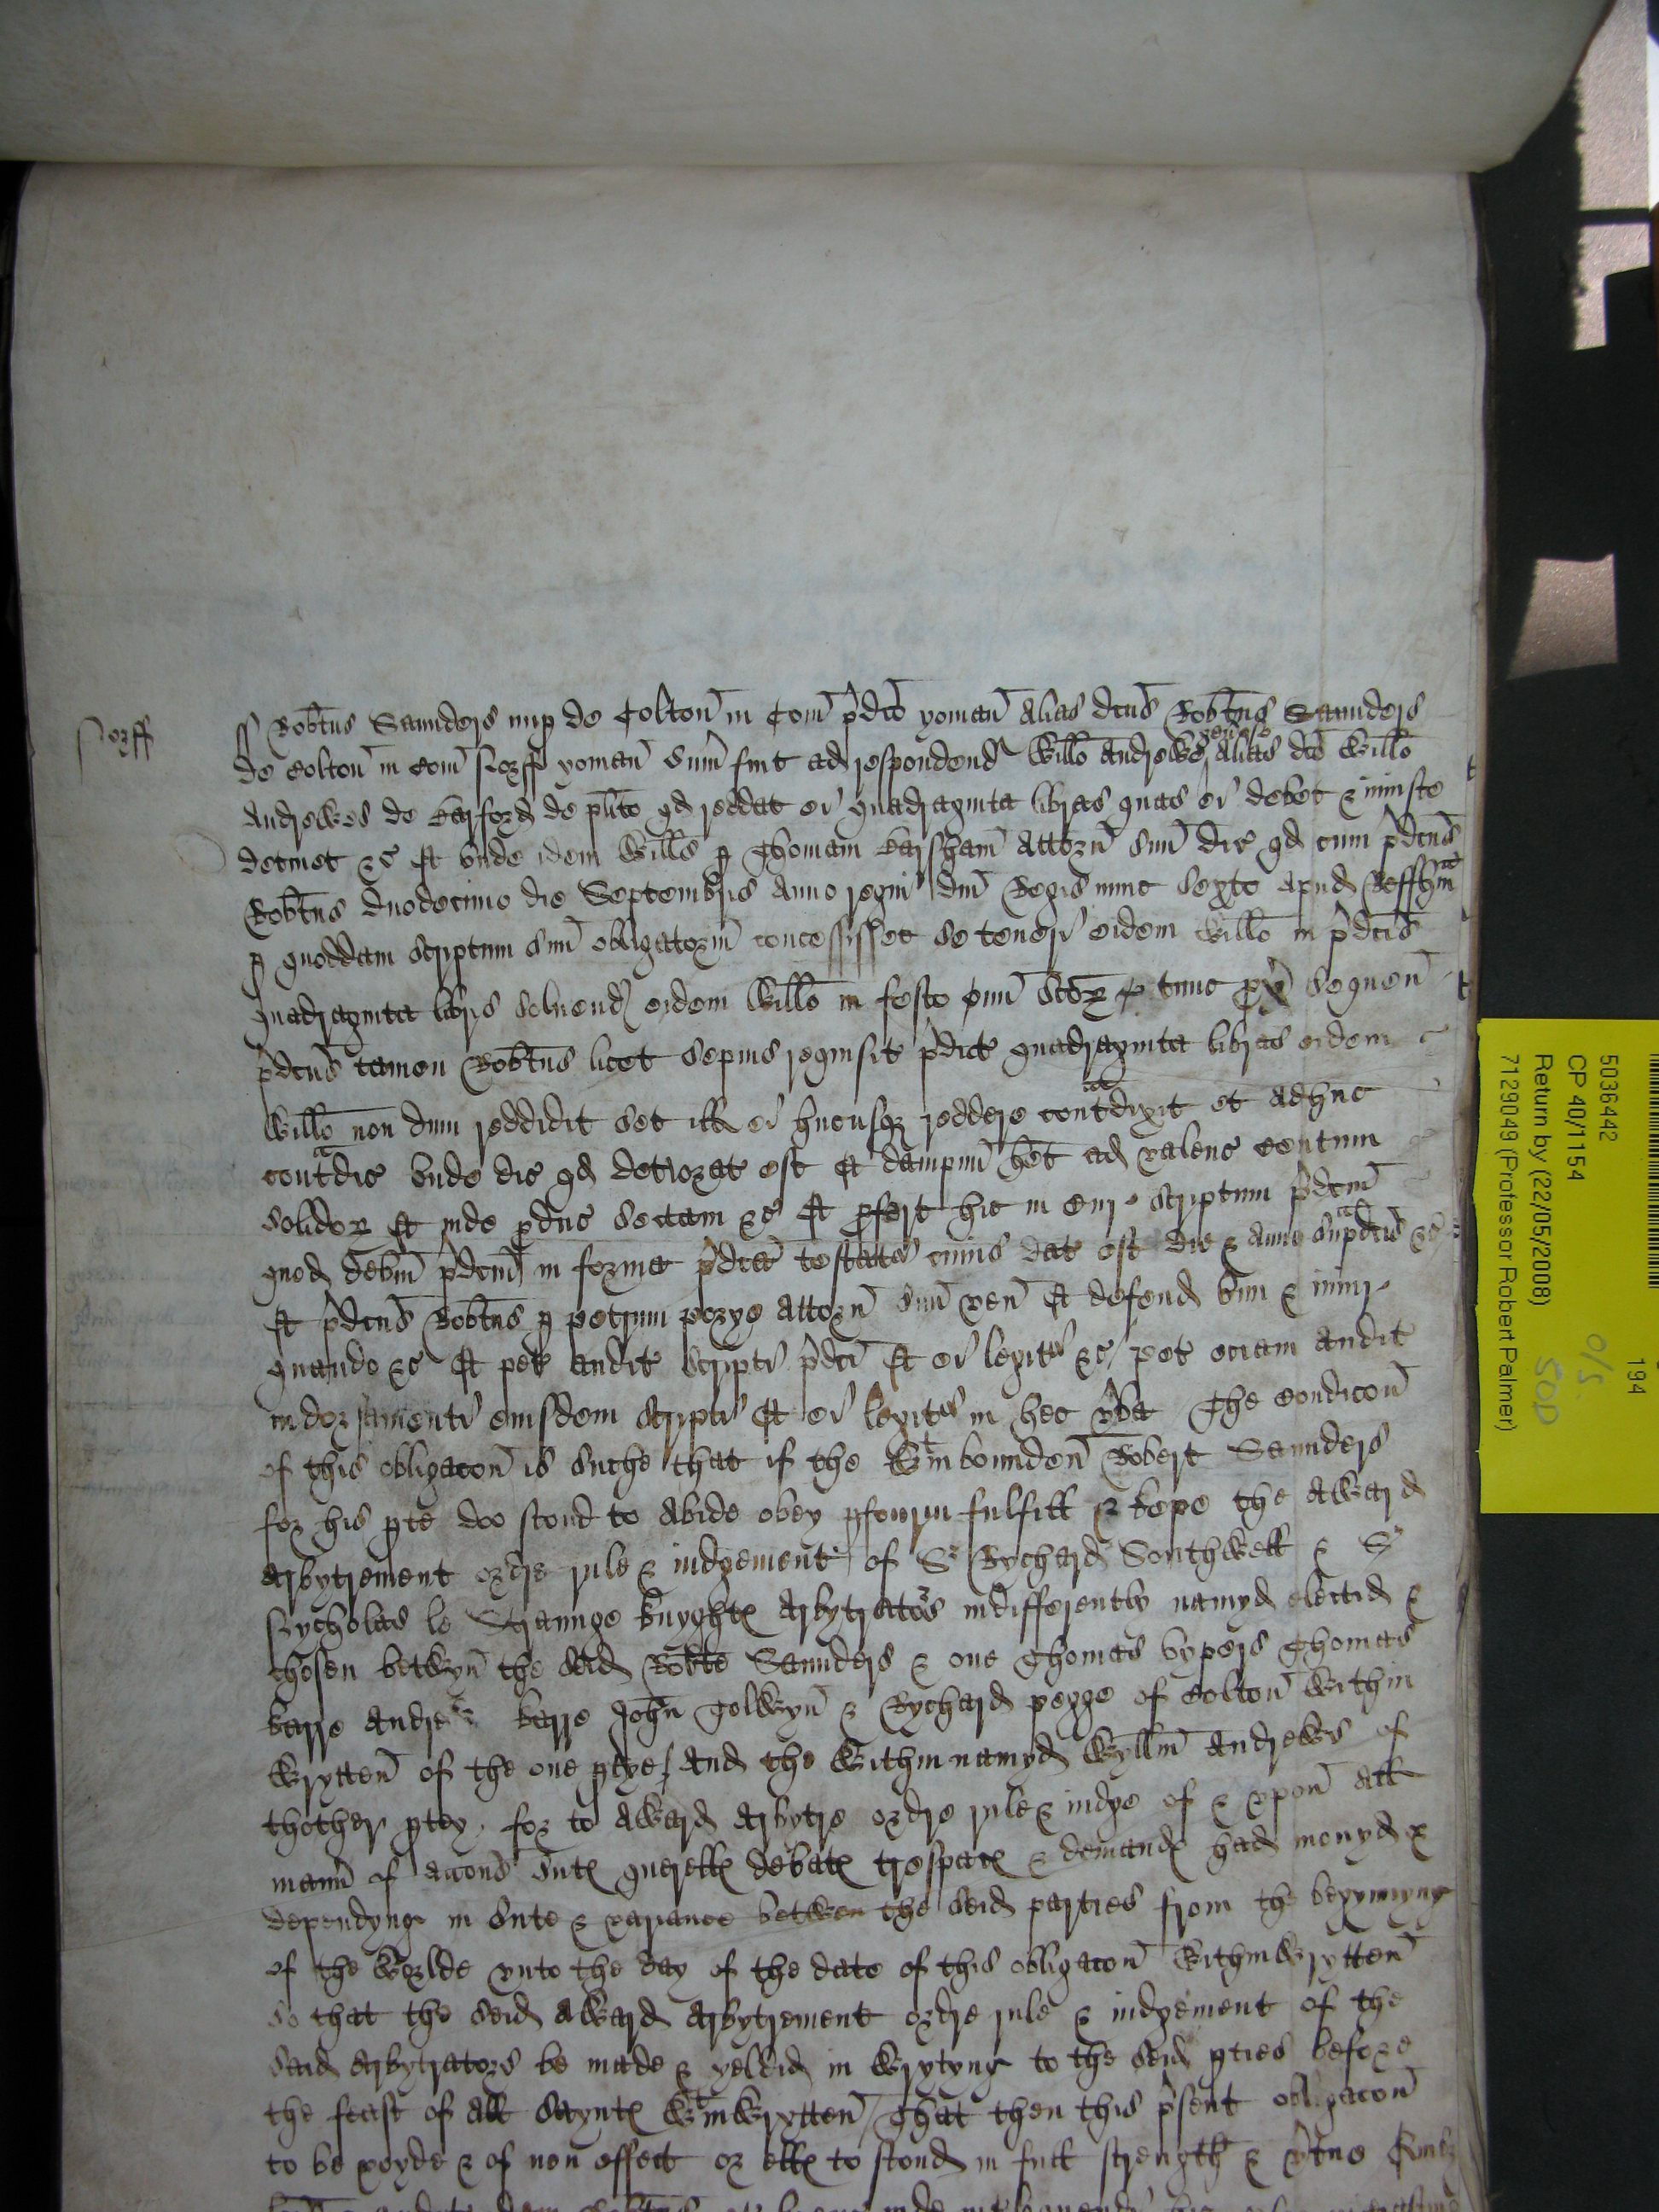 Norff
ss Robtus Saunders nup de Colton in Com pdco yoman alias dcus Robtus Saunders
de Colton in Com Norff yoman sum fuit ad respondend Willo Andrewes generoso alias dco Willo
Andrewes de Barford de plito qd reddat ei quadraginta libras quas ei debet & iniuste
detinet &c Et unde idem Wills p Thomam Barsham attorn suu dic qd cum pdcus
Robtus duodecimo die Septembris anno regni dni Regis nunc sexto apud
p quoddam scriptum suu obligatoriu concessisset se teneri eidem Willo in pdcis
quadraginta libris solvend eidem Willo in festo omi scor tunc px sequen
pdcus tamen Robtus licet sepius requisit pdict quadraginta libras eidem
Willo non dum reddidit set ill ei hucusq reddere contradixit et adhuc
contradic unde dic qd deteriorat est Et dampnu het ad valenc centum
solidor Et inde pduc sectam &c Et profert hic in Cur scriptum pdcm
quod debm pdcm in forma pdca testatr cuius dat est die & anno supradcis &c
Et pdcus Robtus p petrum attorn suu ven Et defend vim & iniur
quando &c Et pet audit scripti pdci Et ei legitr &c pet eciam audit
indorsamenti eiusdem scripti Et ei legitr in hec vba The Condicon
of this obligacon is suche that if the wtinbounden Robert Saunders
for his pte doo stond to abide obey pfourm fulfill & kepe the award
arbytrement ordre rule & iudgement of Sr Rychard Southwell & Sr
Nycholas le Straunge knyghtes arbytrators indifferently namyd electid &
chosen betwyn the seid Robte Saunders & one Thomas Thomas
Barre Andrew Barre John Colwyn & Rychard pegge of Colton within
wrytten of the one ptye / And the within namyd Wyllm Andrews of
thother ptey for to award arbytre ordre rule & iudge of & upon all
maner of accons sutes querelles debates trespaces & demandes had mouyd &
dependyng in sute & variance betwen the seid parties from the begynnyng
of the worlde unto the day of the date of this obligacon withinwrytten
so that the seid award arbytrement ordre rule & iudgement of the
said arbytrators be made & yeldid in wrytyng to the seid pties before
the feast of all Sayntes wtinwrytten / That then this psent obligacon
to be voyde & of non effect or elles to stond in full strength & vtue Quibz
5036442
CP 40/1154
Return by (22/05/2008)
7129049 (Professor Robert Palmer)
194
O/S